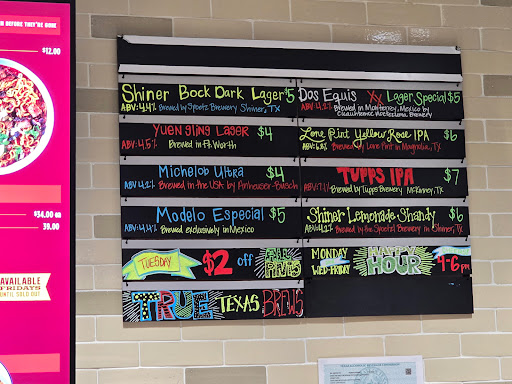 N BEFORE THEY'RE GONE
$12.00
$34.00 ea
39.00
AVAILABLE
FRIDAYS
UNTIL SOLD OUT
Shiner Bock Dark Lager $5
ABV:4.4% Brewed by Spoetzl Brewery Shiner, TX
Yuengling Lager $4
ABV:4.5% Brewed in Ft. Worth
Michelob Ultra $4
ABV:4.2% Brewed in the USA by Anheuser-Busch
Modelo Especial $5
ABV:4.4% Brewed exclusively in Mexico
TUESDAY $2 off ALL PINTS
TRUE TEXAS BREWS
Dos Equis XX Lager Special $5
ABV:4.2% Brewed in Monterrey, Mexico by
Cuauhtemoc Moctezuma Brewery
Lone Pint Yellow Rose IPA $6
ABV:6.8% Brewed by Lone Pint in Magnolia, TX
TUPPS IPA $7
ABV:7.1% Brewed by Tupps Brewery McKinney, TX
Shiner Lemonade Shandy $6
ABV:4.2% Brewed by the Spoetzl Brewery in Shiner, TX
MONDAY
WED-FRIDAY
HAPPY
HOUR
4-6pm